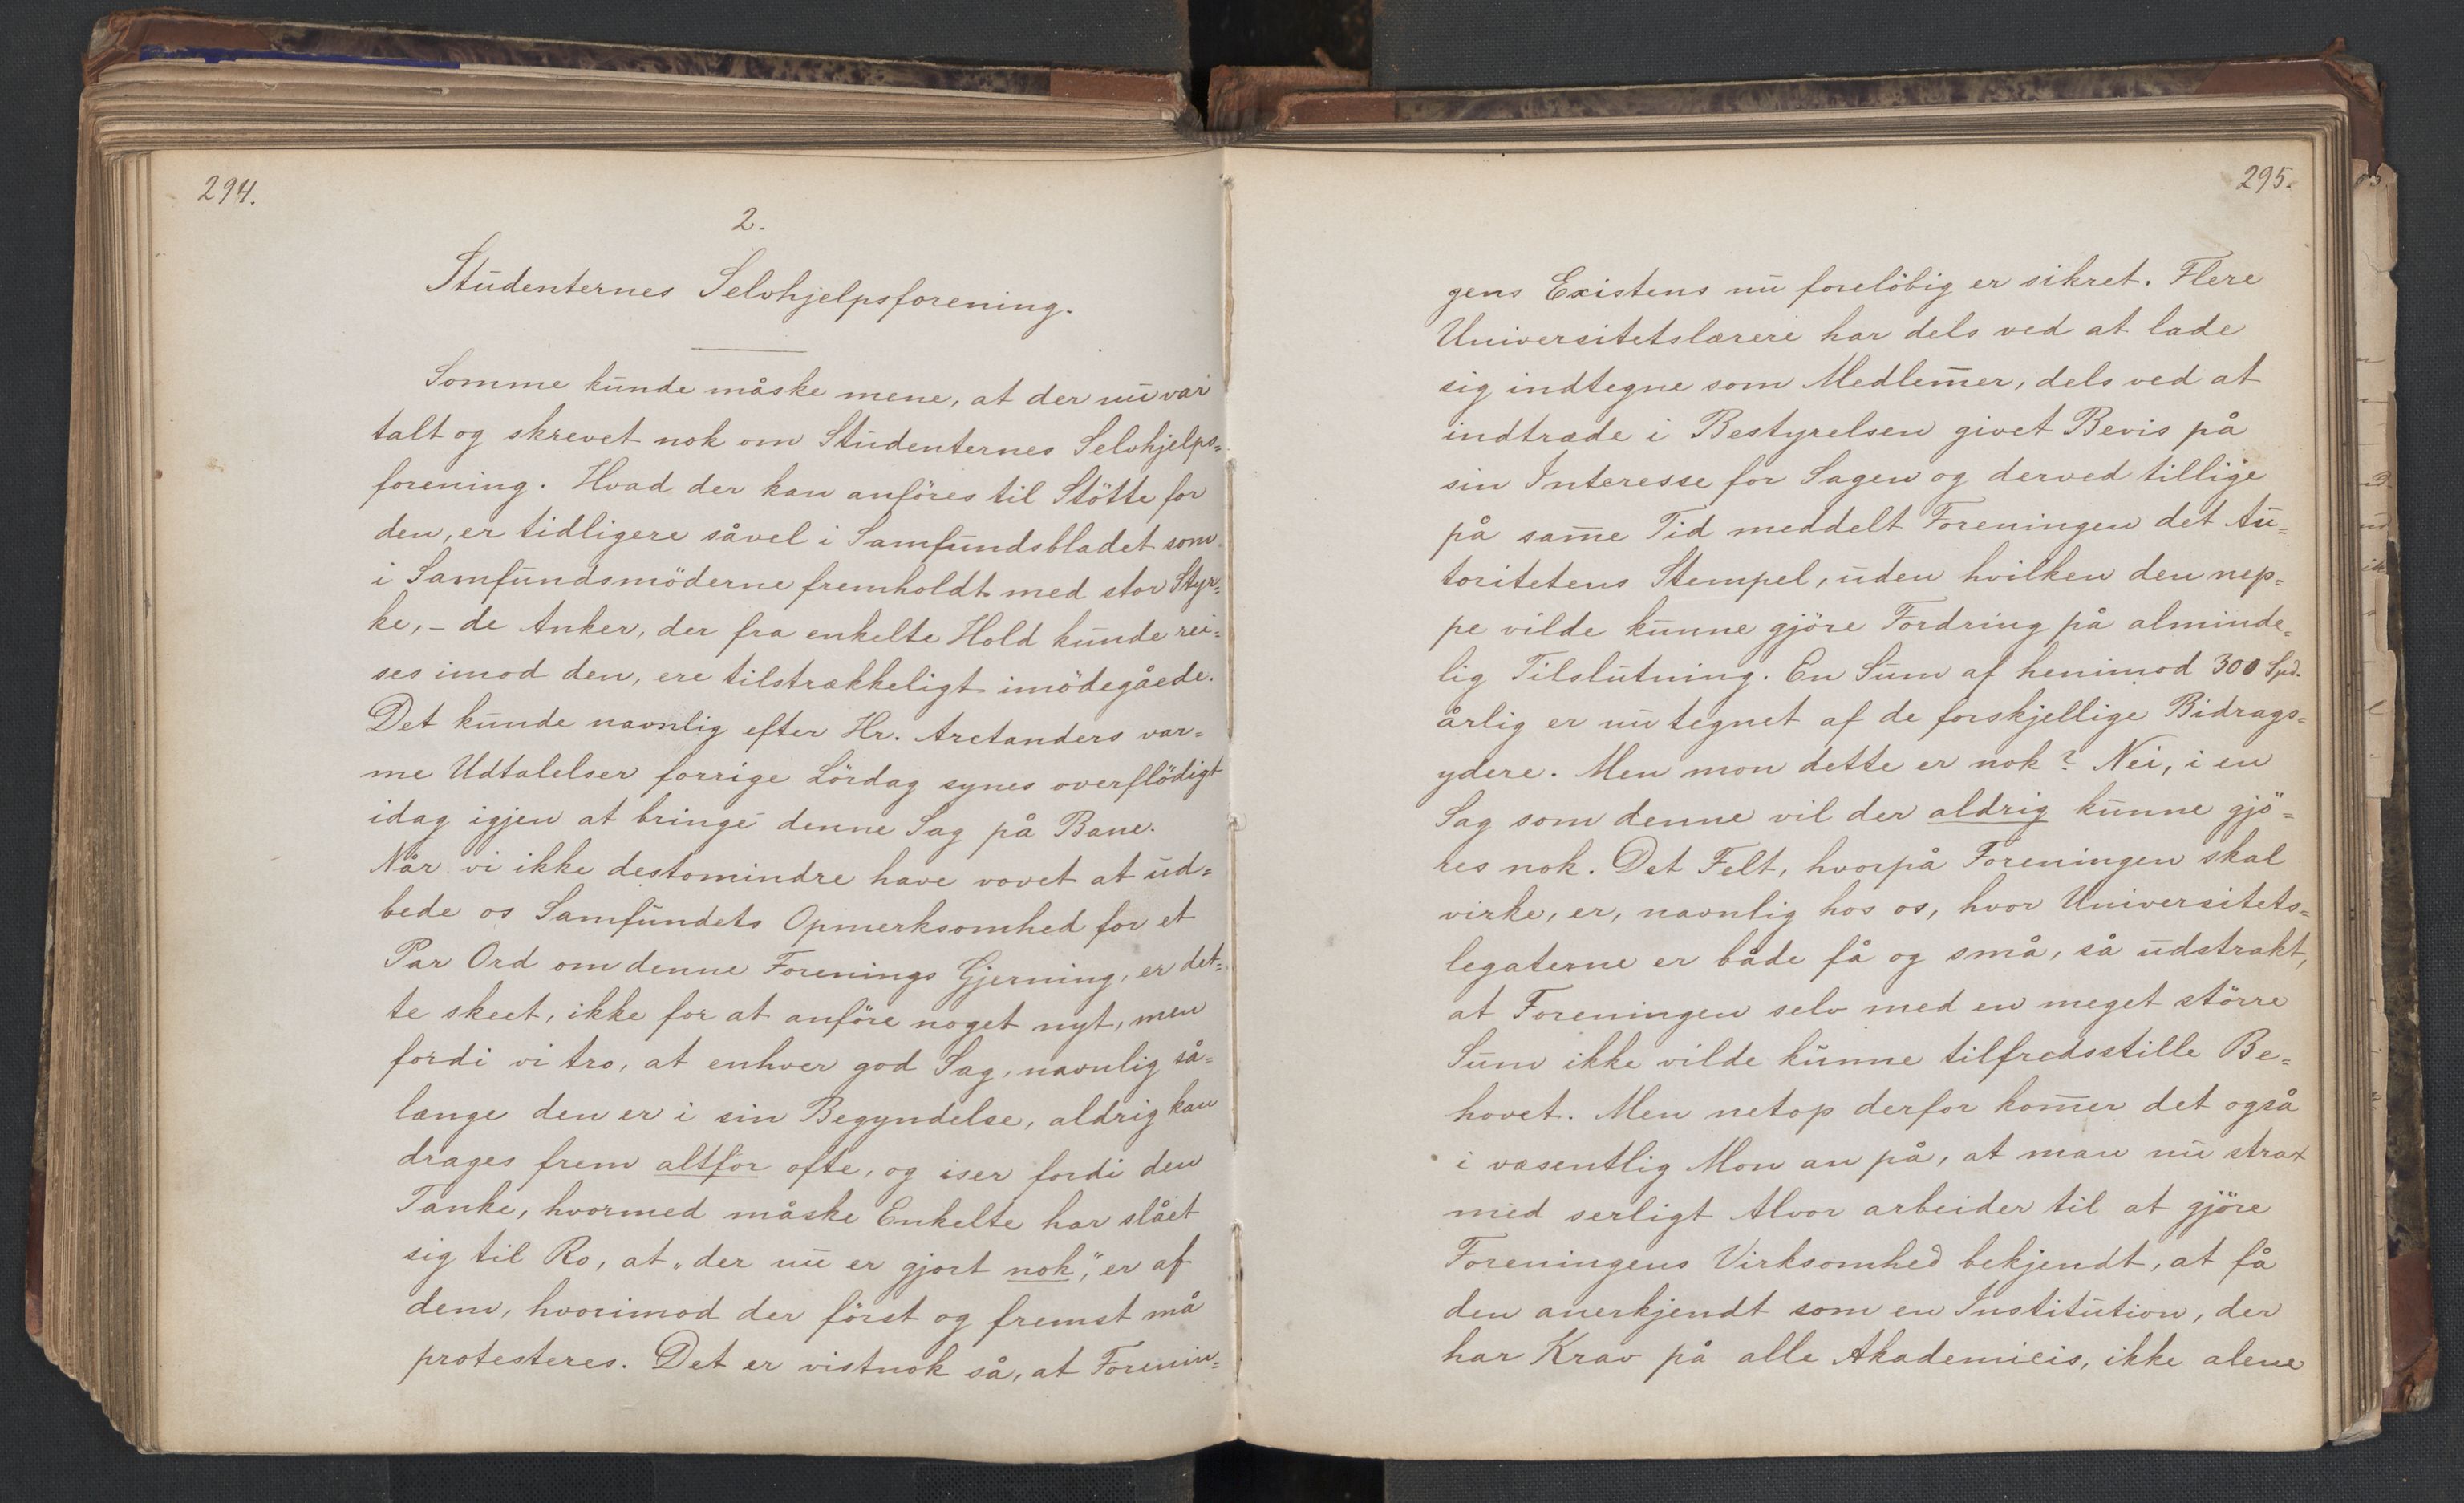 294.
2.
Studenternes Selvhjelpsforening.
Somme kunde måske mene, at der nu var
talt og skrevet nok om Studenternes Selvhjelps=
forening. Hvad der kan anföres til Stötte for
den, er tidligere såvel i Samfundsbladet som
i Samfundsmöderne fremholdt med stor Styr=
ke, – de Anker, der fra enkelte Hold kunde rei=
ses imod den, ere tilstrækkeligt imödegåede.
Det kunde navnlig efter Hr. Arctanders var=
me Udtalelser forrige Lördag synes overflödigt
idag igjen at bringe denne Sag på Bane.
Når vi ikke destomindre have vovet at ud=
bede os Samfundets Opmerksomhed for et
Par Ord om denne Forenings Gjerning, er det=
te skeet, ikke for at anföre noget nyt, men
fordi vi tro, at enhver god Sag, navnlig så=
længe den er i sin Begyndelse, aldrig kan
drages frem altfor ofte, og iser fordi den
Tanke, hvormed måske Enkelte har slået
sig til Ro, at „der nu er gjort nok“, er af
dem, hvorimod der först og fremst må
protesteres. Det er vistnok så, at Forenin=
295.
gens Existens nu forelöbig er sikret. Flere
Universitetslærere har dels ved at lade
sig indtegne som Medlem̄er, dels ved at
indtræde i Bestyrelsen givet Bevis på
sin Interesse for Sagen og derved tillige
på sam̄e Tid meddelt Foreningen det Au=
toritetens Stempel, uden hvilken den nep=
pe vilde kunne gjöre Fordring på alminde=
lig Tilslutning. En Sum af henimod 300 Spd.
årlig er nu tegnet af de forskjellige Bidrags=
ydere. Men mon dette er nok? Nei, i en
Sag som denne vil der aldrig kunne gjö=
res nok. Det Felt, hvorpå Foreningen skal
virke, er, navnlig hos os, hvor Universitets=
legaterne er både få og små, så udstrakt,
at Foreningen selv med en meget större
Sum ikke vilde kunne tilfredsstille Be=
hovet. Men netop derfor kom̄er det også
i væsentlig Mon an på, at man nu strax
med serligt Alvor arbeider til at gjöre
Foreningens Virksomhed bekjendt, at få
den anerkjendt som en Institution, der
har Krav på alle Akademicis, ikke alene